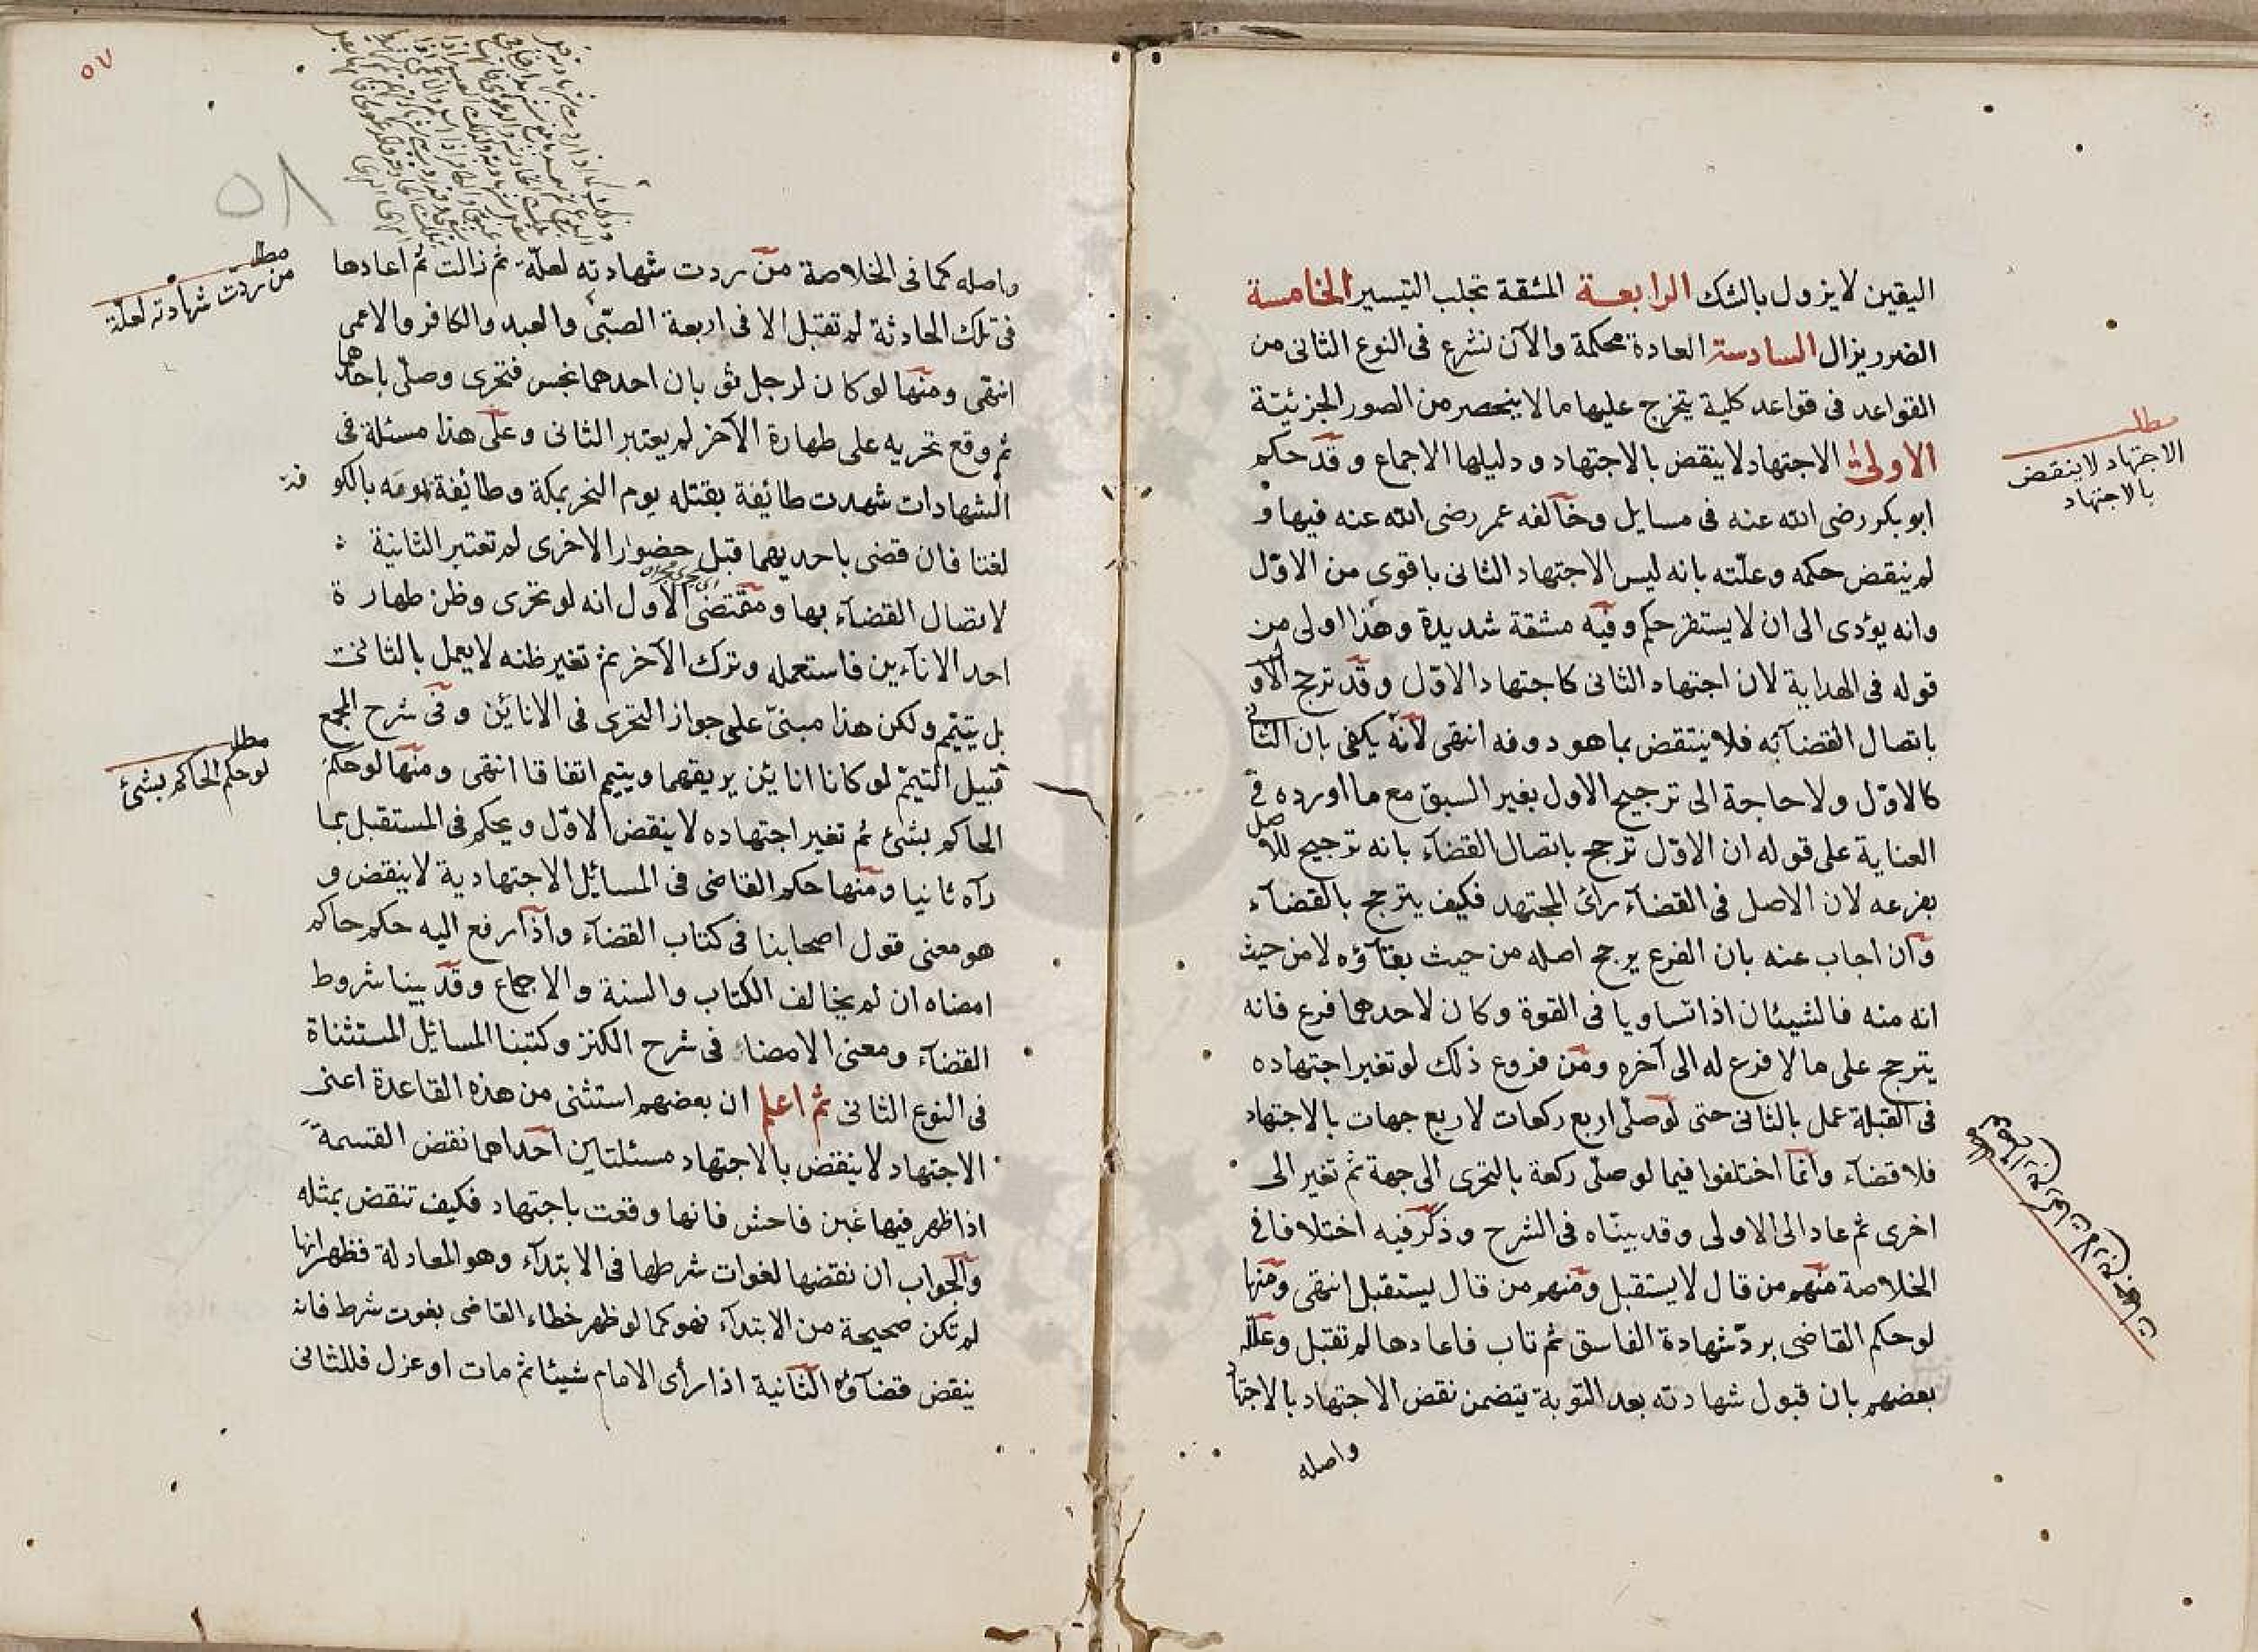 اليقين لا يزول بالشك الرابعة المشقة تجلب التيسير الخامسة
الضرر يزال السادسة العادة محكمة والآن نشرع فى النوع الثانى من
القواعد فى قواعد كلية يتخرج عليها ما لا ينحصر من الصور الجزئية
الاولى الاجتهاد لا ينقض بالاجتهاد ودليلها الاجماع وقد حكم
ابو بكر رضى الله عنه فى مسايل وخالفه عمر رضى الله عنه فيها و
لم ينقض حكمه وعلّته بانه ليس الاجتهاد الثانى باقوى من الاوّل
وانه يؤدى الى ان لا يستقر حكم وفيه مشقة شديدة وهذا اولى من
قوله فى الهداية لان اجتهاد الثانى كاجتهاد الاوّل وقد ترجح الاول
باتصال القضآء به فلا ينتقض بما هو دونه انتهى لانه يكفى بان الثانى
كالاوّل ولا حاجة الى ترجيح الاول بغير السبق مع ما اورده فى
العناية على قوله ان الاوّل ترجح باتصال القضآء بانه ترجيح للاصل
بفرعه لان الاصل فى القضآء رائ المجتهد فكيف يترجح بالقضآء
وان اجاب عنه بان الفرع يرجح اصله من حيث بقآؤه لا من حيث
انه منه فالشيئان اذا تساويا فى القوة وكان لاحدهما فرع فانه
يترجح على ما لا فرع له الى آخره ومن فروع ذلك لو تغير اجتهاده
فى القبلة عمل بالثانى حتى لو صلّى اربع ركعات لاربع جهات بالاجتهاد
فلا قضآء وانما اختلفوا فيما لو صلّى ركعة بالتحرى الى جهة ثم تغير الى
اخرى ثم عاد الى الاولى وقد بينّاه فى الشرح وذكر فيه اختلافا فى
الخلاصة منهم من قال لا يستقبل ومنهم من قال يستقبل انتهى ومنها
لو حكم القاضى بردّ شهادة الفاسق ثم تاب فاعادها لم تقبل وعلله
بعضهم بان قبول شهادته بعد التوبة يتضمن نقض الاجتهاد بالاجتهاد
واصله
مطلب
الاجتهاد لا ينقض
بالاجتهاد
٥٧
٥٨
واصله كما فى الخلاصة من ردت شهادته لعلّة ثم زالت ثم اعادها
فى تلك الحادثة لم تقبل الا فى اربعة الصبىّ والعبد والكافر والاعمى
انتهى ومنها لو كان لرجل ثوبان احدهما نجس فتحرى وصلّى باحدهما
ثم وقع تحريه على طهارة الآخر لم يعتبر الثانى وعلى هذا مسئلة فى
الشهادات شهدت طائفة بقتله يوم النحر بمكة وطائفة يومه بالكوفة
لغتا فان قضى باحديهما قبل حضور الاخرى لم تعتبر الثانية
لاتصال القضآء بها ومقتضى الاول انه لو تحرى وظن طهارة
احد الانآءين فاستعمله وترك الآخر ثم تغير ظنه لا يعمل بالثانى
بل يتيمّم ولكن هذا مبنىّ على جواز التحرى فى الانائين وفى شرح المجمع
قبيل التيمّم لو كانا انائين يريقهما ويتيمم اتفاقا انتهى ومنها لو حكم
الحاكم بشئ ثم تغير اجتهاده لا ينقض الاوّل ويحكم فى المستقبل بما
رآه ثانيا ومنها حكم القاضى فى المسائل الاجتهادية لا ينقض و
هو معنى قول اصحابنا فى كتاب القضآء واذا رفع اليه حكم حاكم
امضاه ان لم يخالف الكتاب والسنة والاجماع وقد بينا شروط
القضآء ومعنى الامضاء فى شرح الكنز وكتبنا المسائل المستثناة
فى النوع الثانى ثم اعلم ان بعضهم استثنى من هذه القاعدة اعنى
الاجتهاد لا ينقض بالاجتهاد مسئلتين احداهما نقض القسمة
اذا ظهر فيها غبن فاحش فانها وقعت باجتهاد فكيف تنقض بمثله
والجواب ان نقضها لفوات شرطها فى الابتدآء وهو المعادلة فظهر انها
لم تكن صحيحة من الابتدآء فهو كما لو ظهر خطاء القاضى بفوت شرط فانه
ينقض قضآؤه الثانية اذا رأى الامام شيئا ثم مات او عزل فللثانى
مطلب
من ردت شهادته لعلّة
مطلب
لو حكم الحاكم بشئ